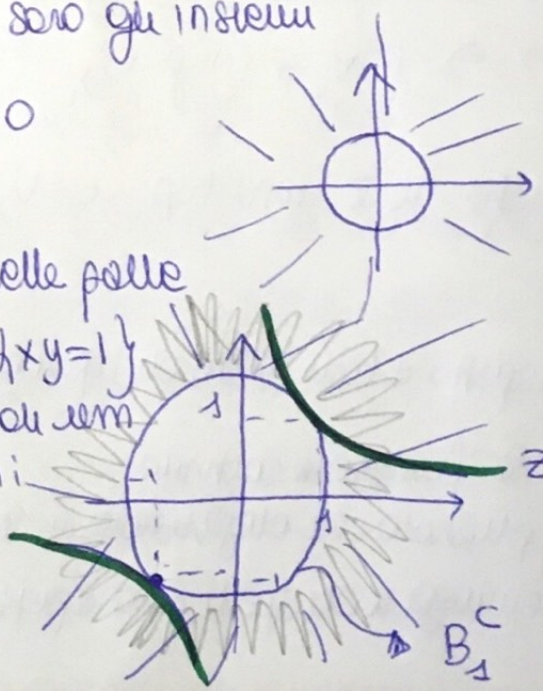 sono gli insiemi
0
elle palle
xy=1}
i
1
1
Z
B₁ᶜ